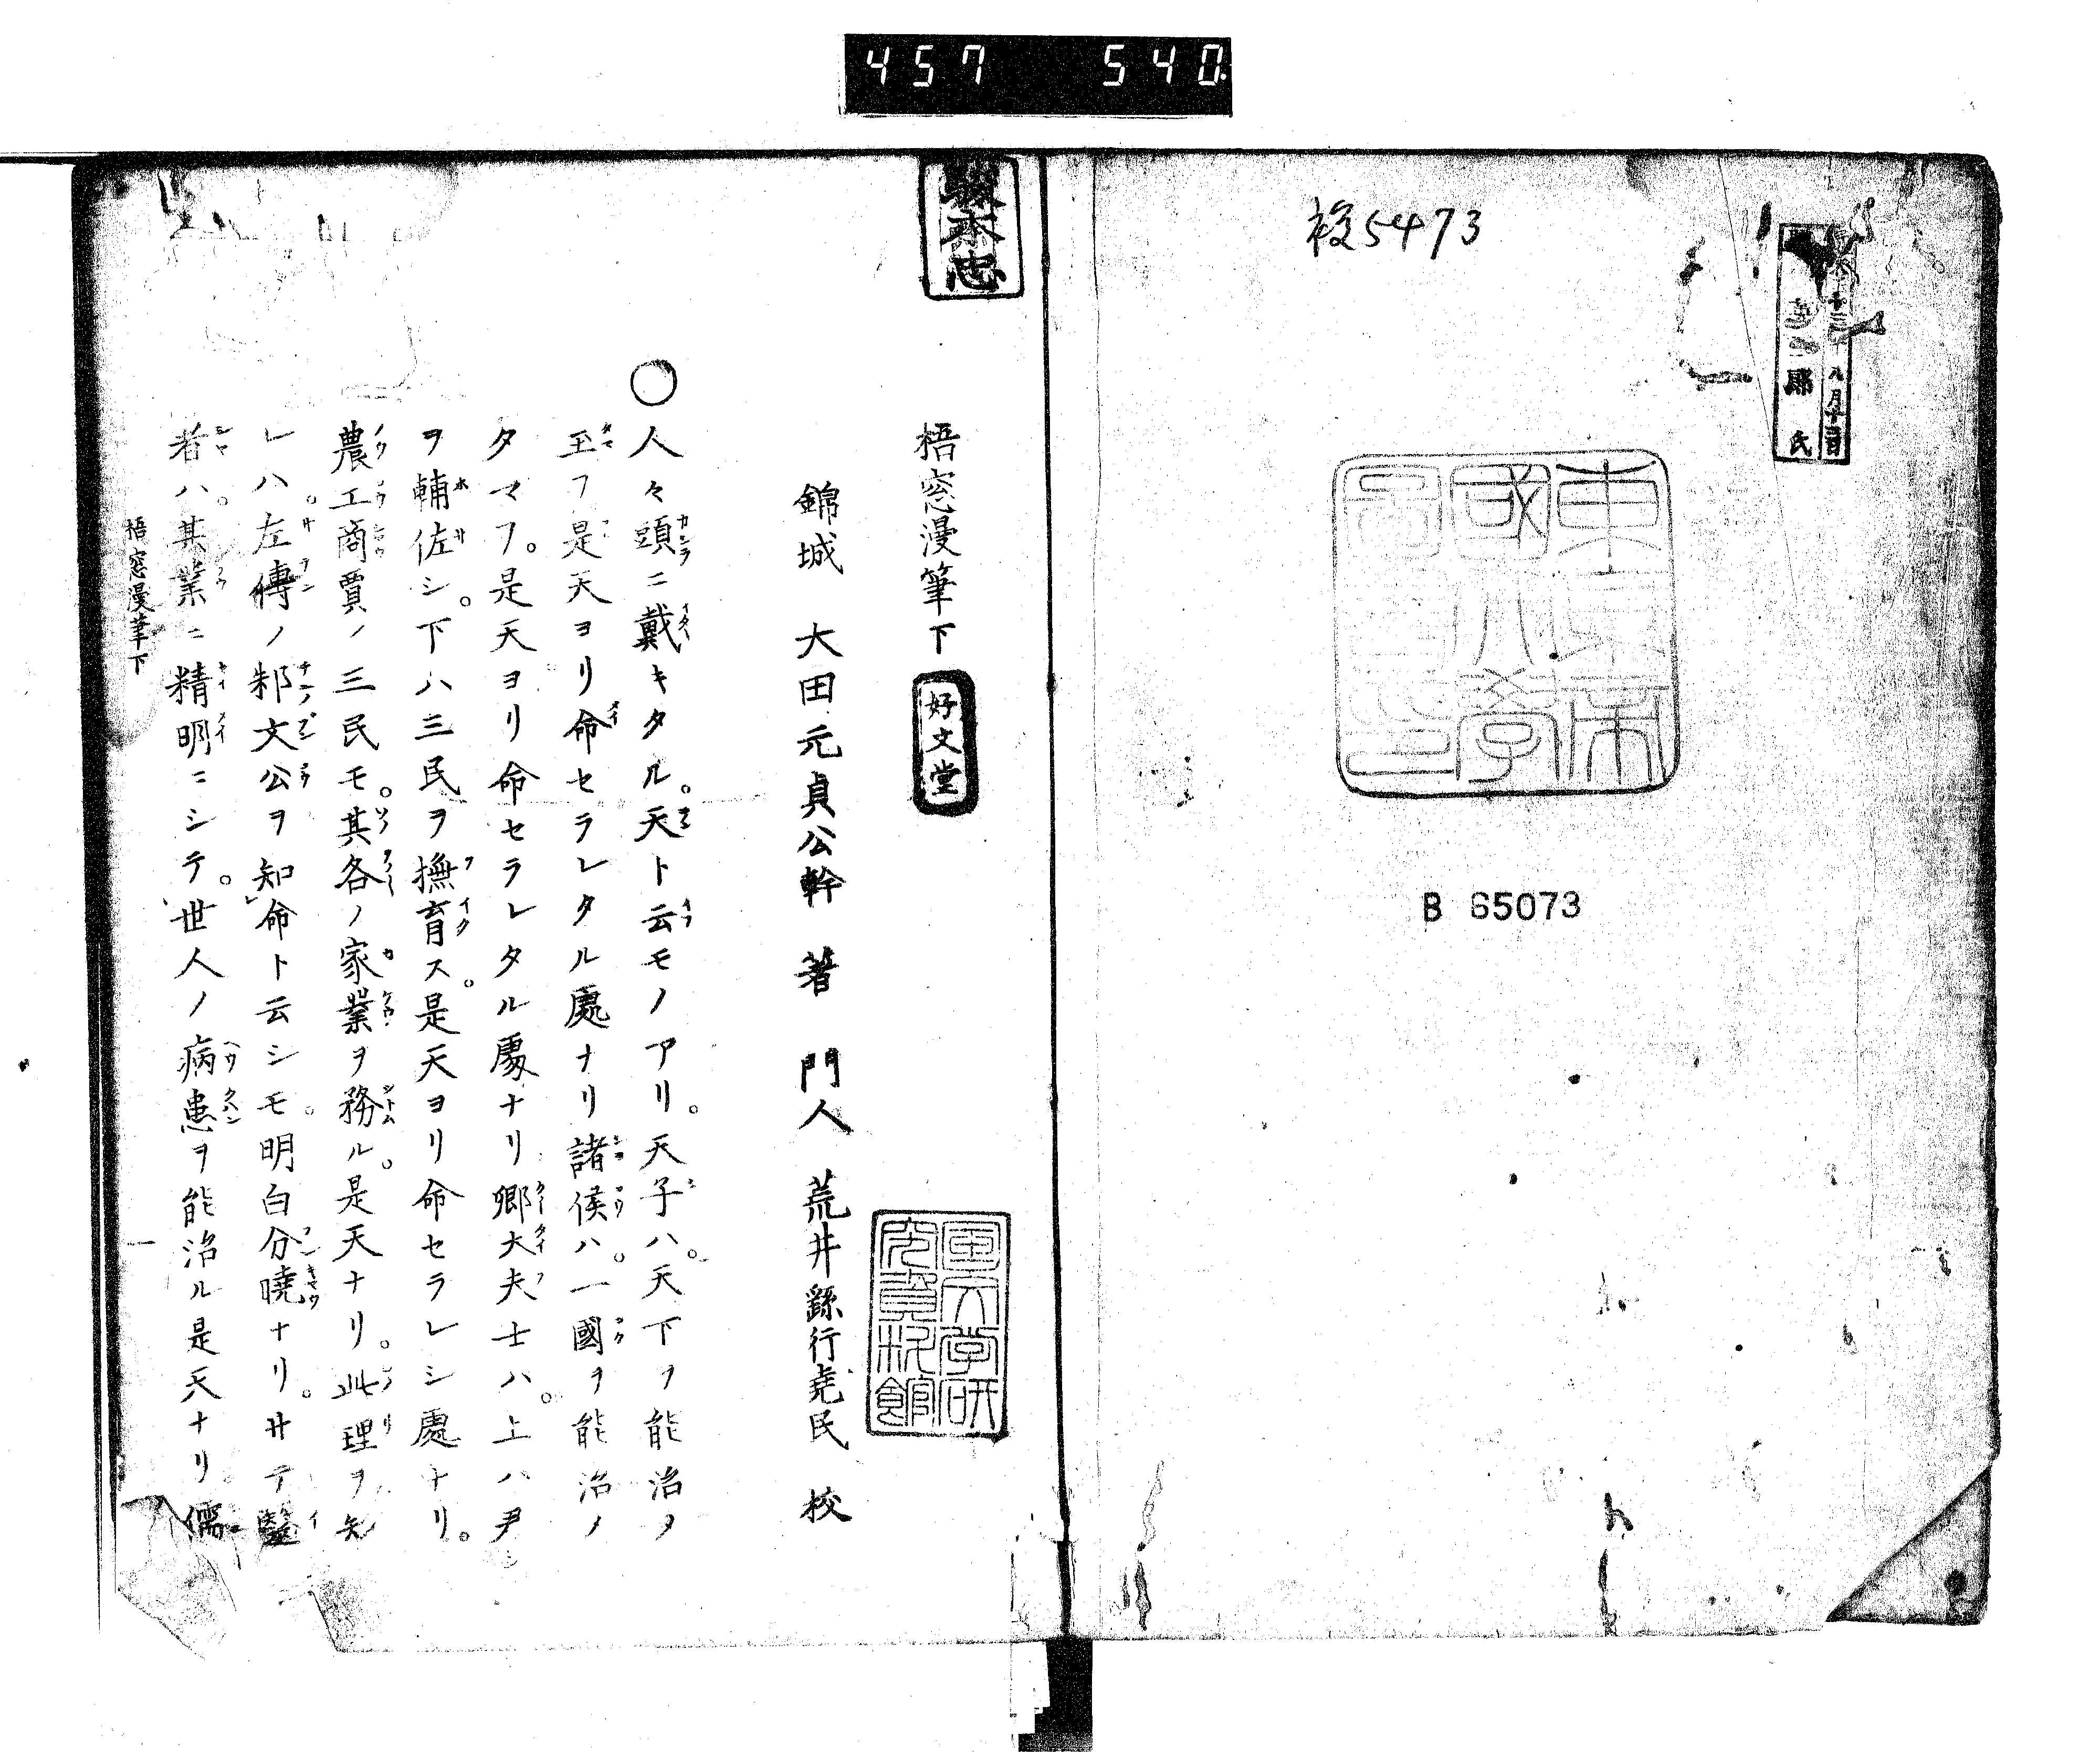 457 540
複5473
八月十三日
氏
東京帝
國大學
圖書印
B 65073
梧窓漫筆下
好文堂
錦城 大田元貞公幹 著 門人 荒井繇行堯民 校
国文学研
究資料館
〇人々頭ニ戴キタル。天ト云モノアリ。天子ハ。天下ヲ能治タ
玉フ是天ヨリ命セラレタル處ナリ諸侯ハ。一國ヲ能治メ
タマフ。是天ヨリ命セラレタル處ナリ卿大夫士ハ。上ハ尹
ヲ輔佐シ。下ハ三民ヲ撫育ス。是天ヨリ命セラレシ處ナリ。
農工商賈ノ三民モ。其各ノ家業ヲ務ル。是天ナリ。此理ヲ知
レハ。左傳ノ邾文公ヲ知命ト云シモ。明白分曉ナリ。サテ醫
者ハ。其業ニ精明ニシテ。世人ノ病患ヲ能治ル是天ナリ儒
梧窓漫筆下
一